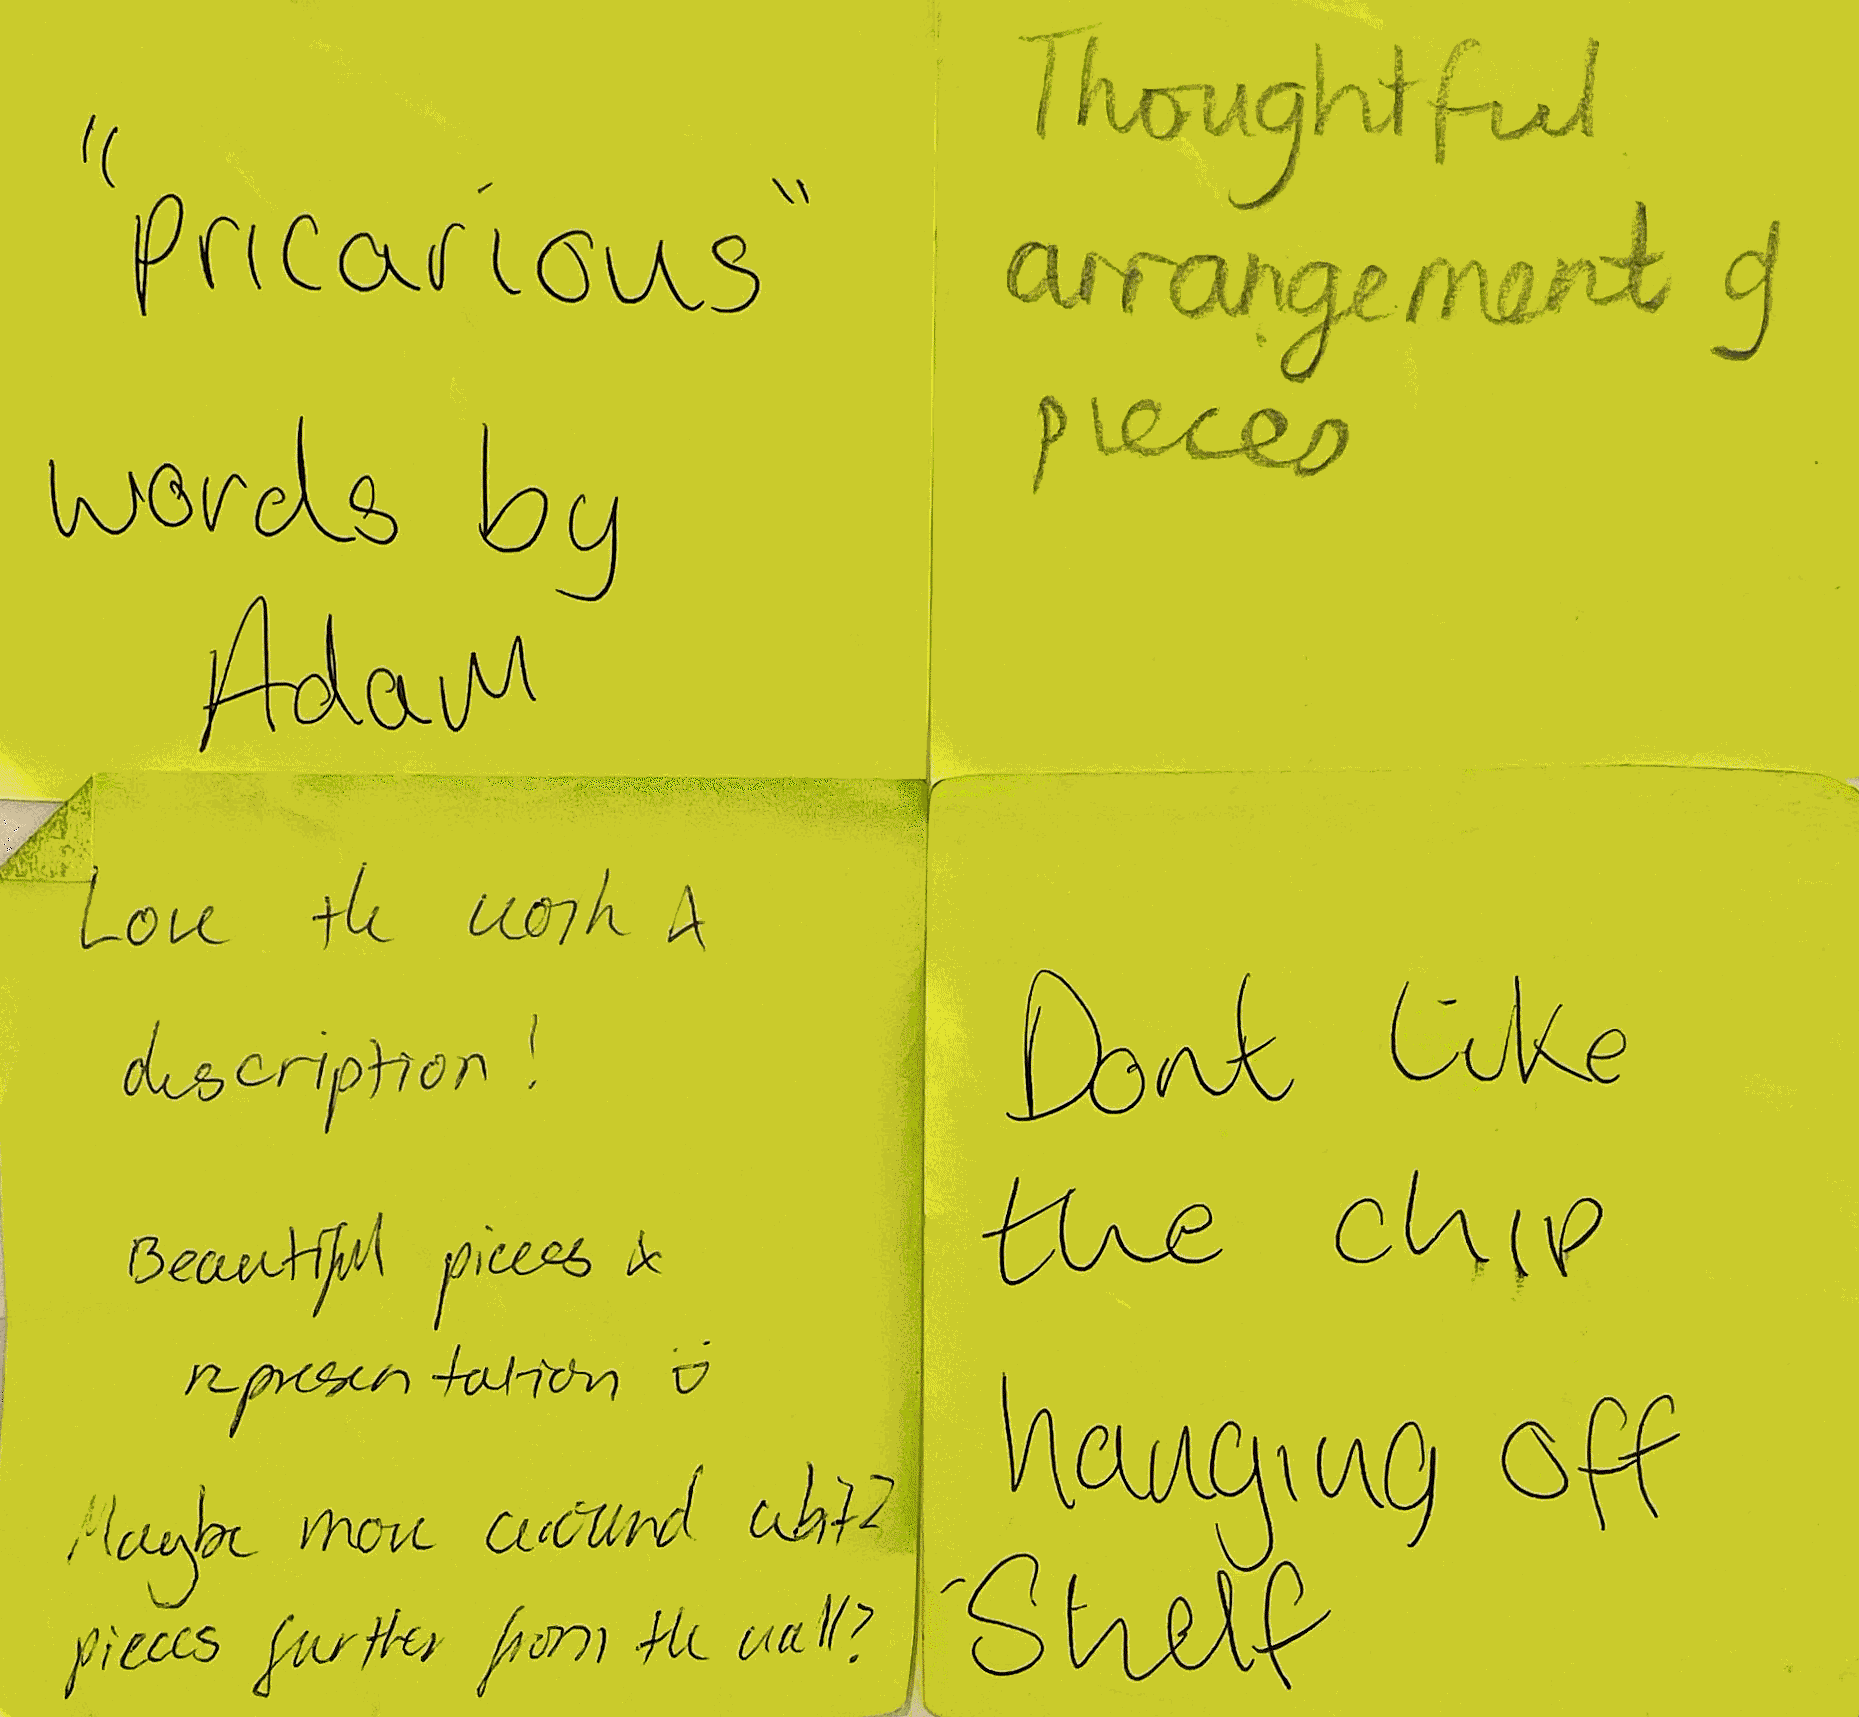 "Pricarious"
words by
Adam
Thoughtful
arrangement of
pieces
Love the work &
description!
Beautiful pieces &
representation ☺
Maybe move around abit?
pieces further from the wall?
Dont like
the chip
hanging off
Shelf